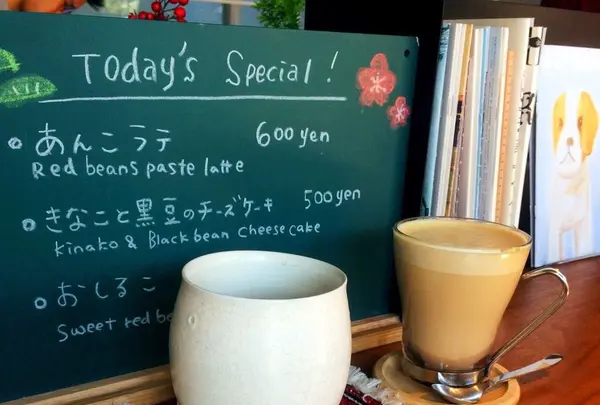 Today's Special!
あんこラテ 600 yen
Red beans paste latte
きなこと黒豆のチーズケーキ 500 yen
Kinako & Black bean cheese cake
おしるこ
Sweet red